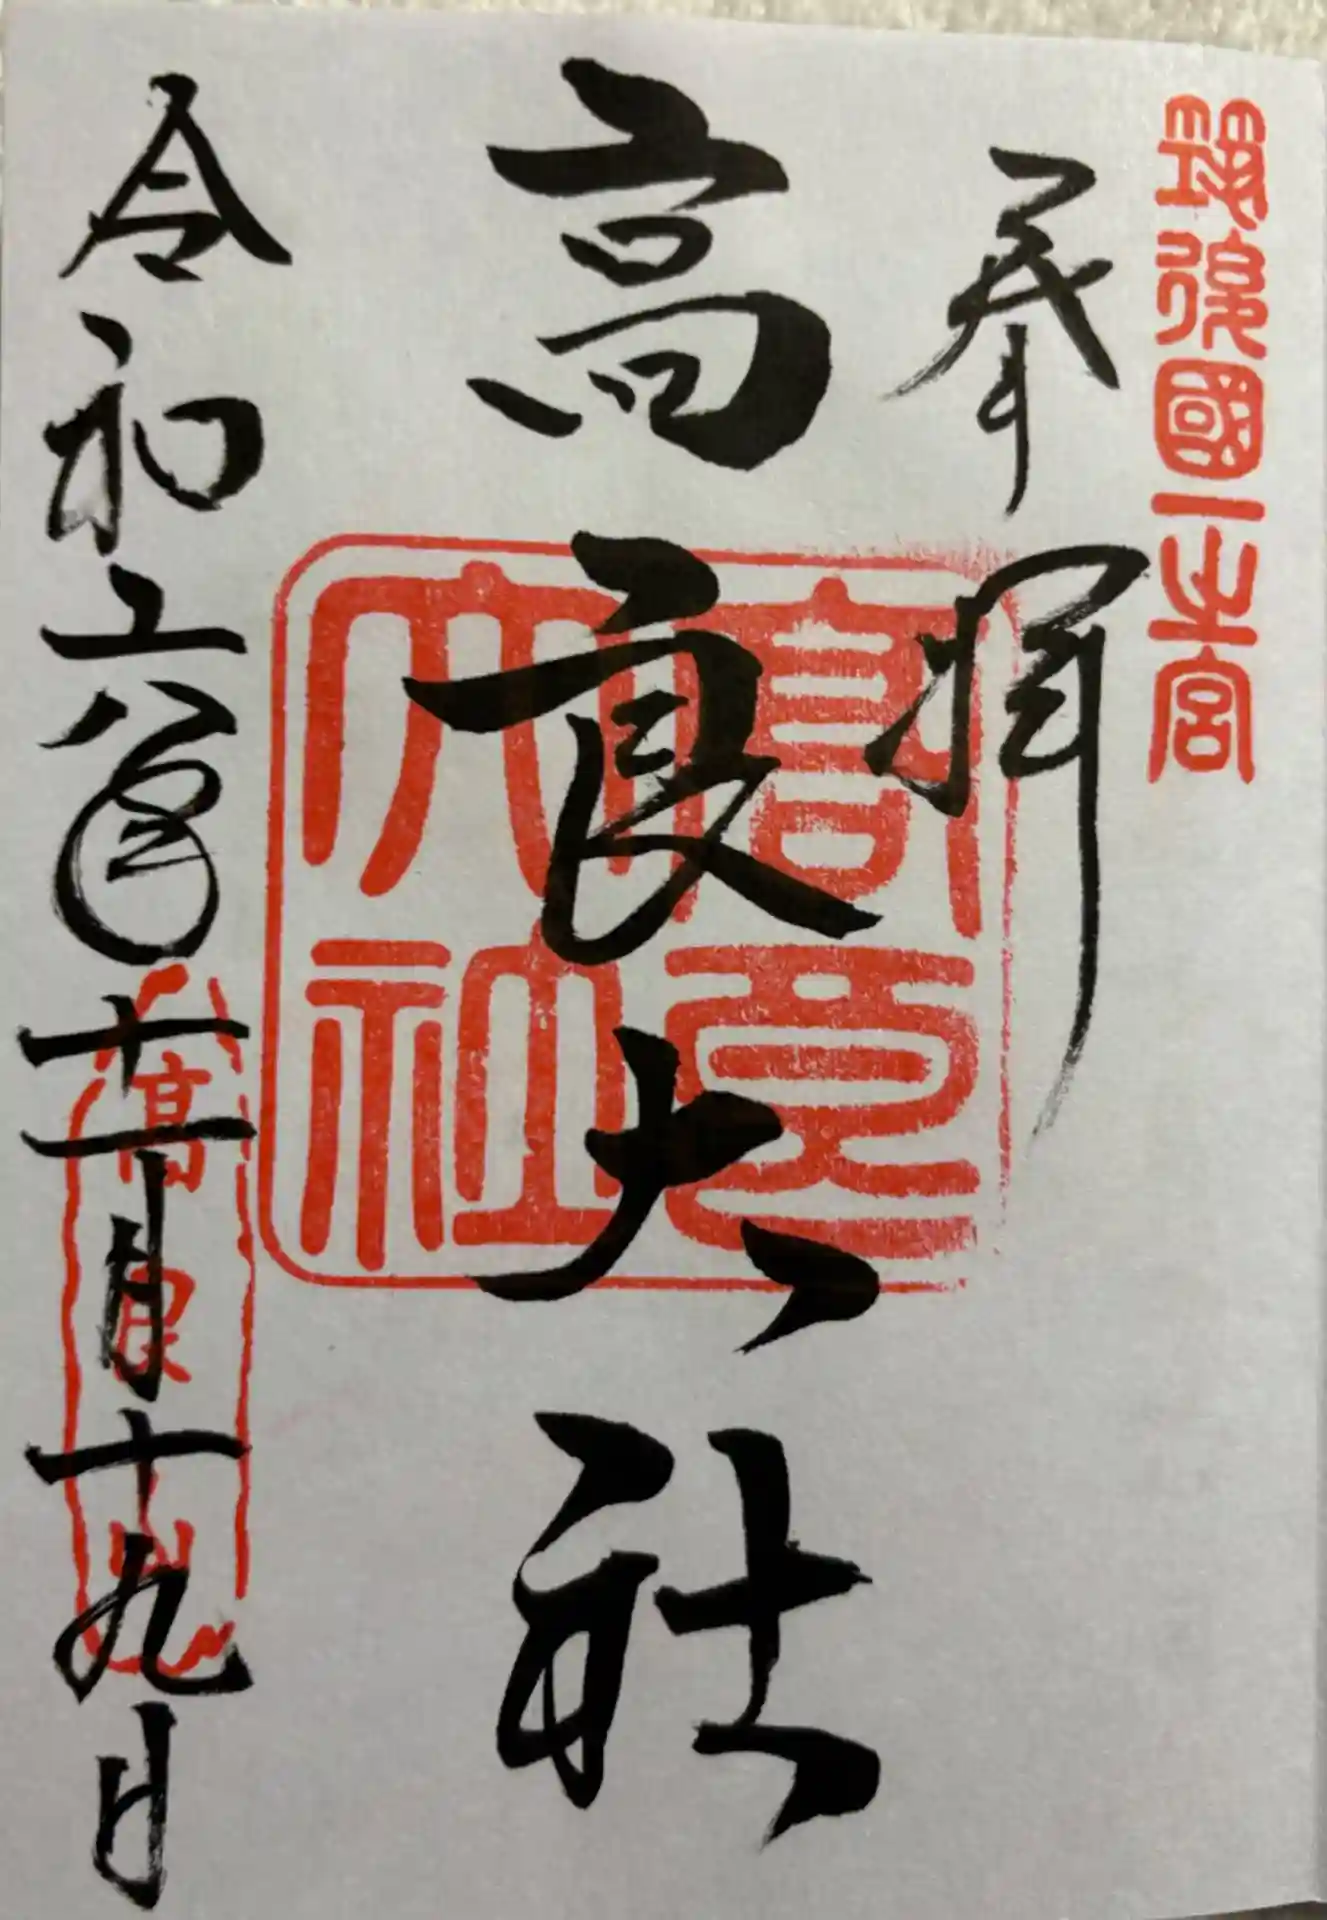 筑後國一之宮
奉拝
高良大社
高良大社
令和六年十一月十九日
高良山